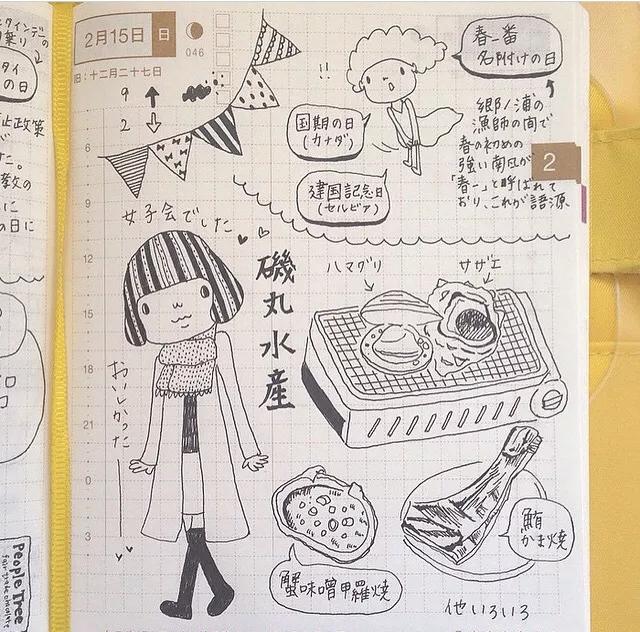 2月15日 日
046
旧:十二月二十七日
9
2
!!
春一番
名附けの日
国期の日
(カナダ)
建国記念日
(セルビア)
郷ノ浦の
漁師の間で
春の初めの
強い南風が
「春一」と呼ばれて
おり、これが語源
2
女子会でした
6
9
12
15
18
21
0
3
磯丸水産
おいしかったー
ハマグリ
サザエ
蟹味噌甲羅焼
鮪
かま焼
他いろいろ
の日
止政策
教の
に
の日に
People Tree